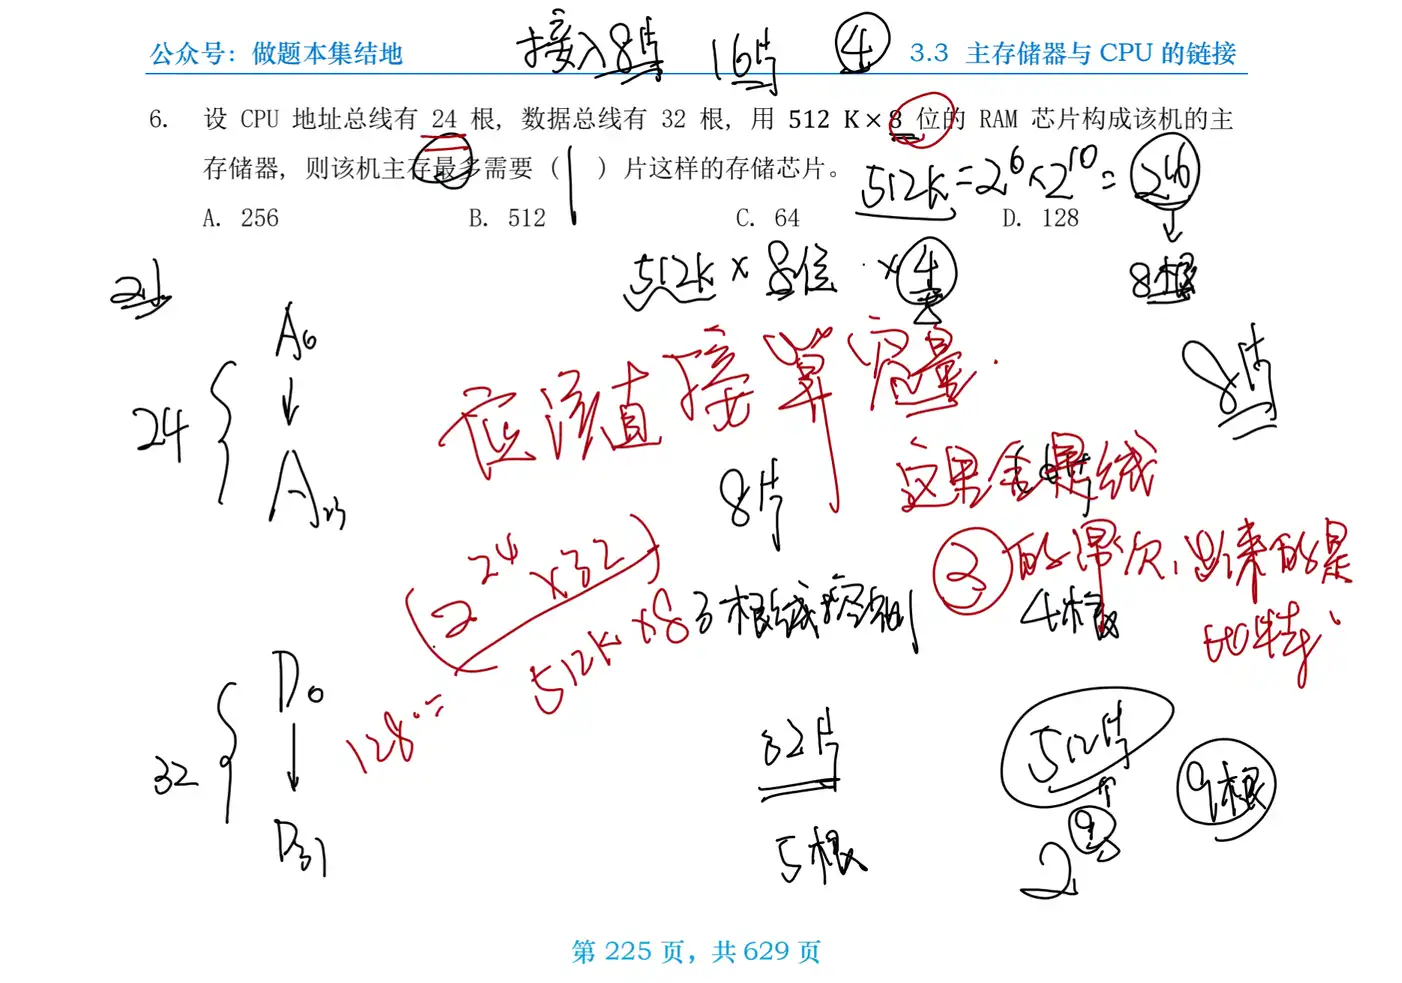 接入8片 16片 4
公众号：做题本集结地
3.3 主存储器与 CPU 的链接
6. 设 CPU 地址总线有 24 根，数据总线有 32 根，用 512 K×8 位的 RAM 芯片构成该机的主
存储器，则该机主存最多需要（ ）片这样的存储芯片。
512K=2^6×2^10=2^16
A. 256 B. 512 C. 64 D. 128
512K × 8位 ·×4
8根
A0
24
A23
应该直接算容量.
8片
8片
这里全是线
2的幂次，出来的是
比特
(2^24×32)
512K×8
128:=
3根线控制
4根
D0
32
D31
32片
512片
9根
5根
2^9
第 225 页，共 629 页